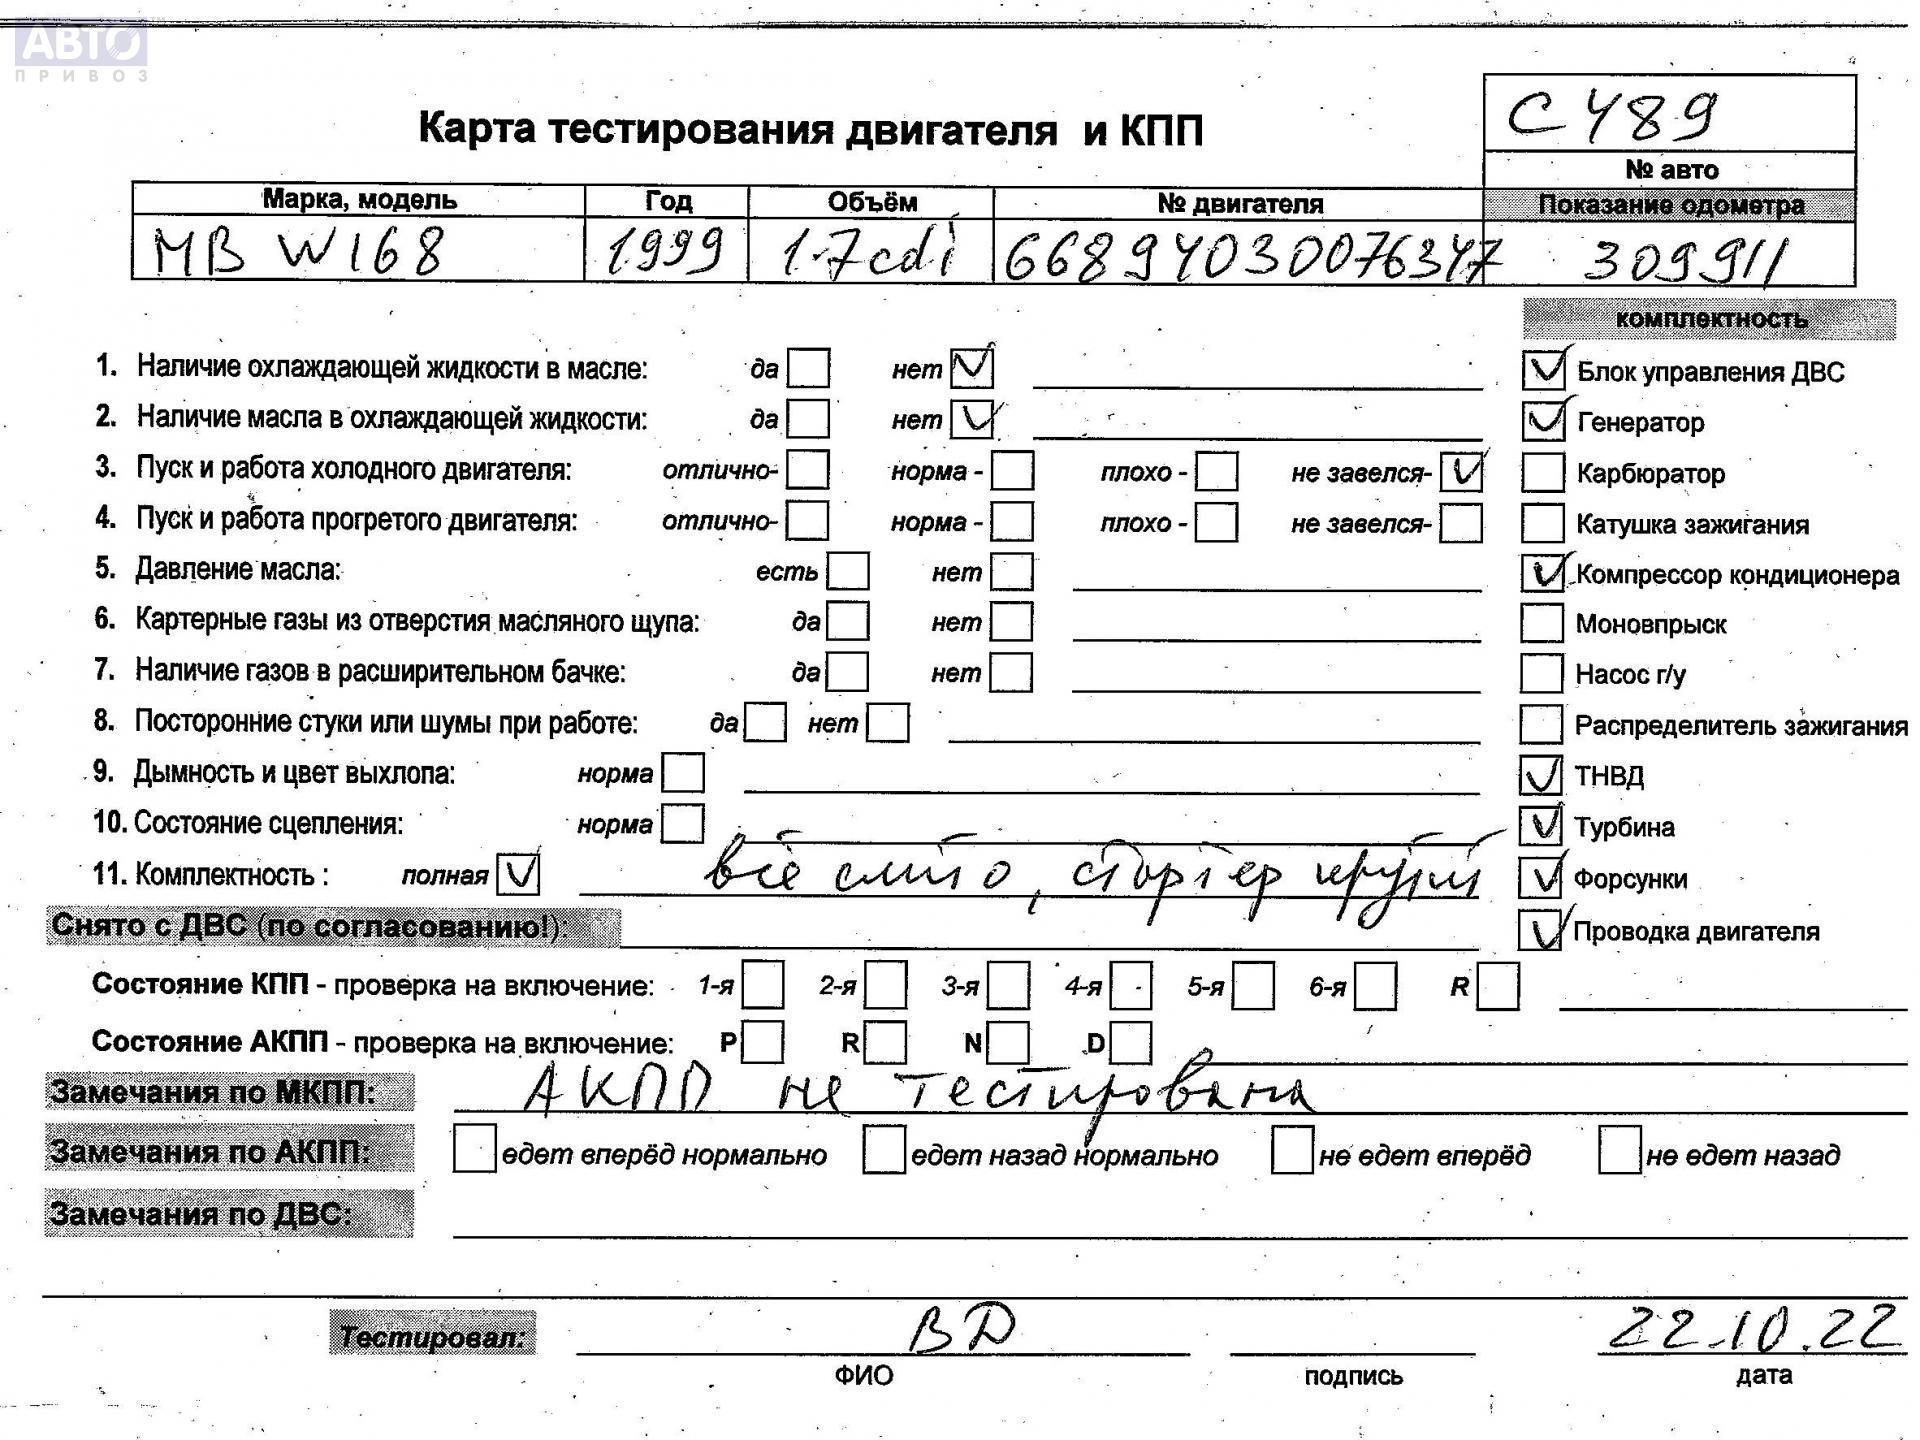 АВТО
ПРИВОЗ
С489
Карта тестирования двигателя и КПП
№ авто
Марка, модель Год Объём № двигателя Показание одометра
MB W168 1999 1.7cdi 66894030076347 309911
комплектность
1. Наличие охлаждающей жидкости в масле: да нет Блок управления ДВС
2. Наличие масла в охлаждающей жидкости: да нет Генератор
3. Пуск и работа холодного двигателя: отлично- норма - плохо - не завелся- Карбюратор
4. Пуск и работа прогретого двигателя: отлично- норма - плохо - не завелся- Катушка зажигания
5. Давление масла: есть нет Компрессор кондиционера
6. Картерные газы из отверстия масляного щупа: да нет Моновпрыск
7. Наличие газов в расширительном бачке: да нет Насос г/у
8. Посторонние стуки или шумы при работе: да нет Распределитель зажигания
9. Дымность и цвет выхлопа: норма ТНВД
10. Состояние сцепления: норма Турбина
11. Комплектность : полная всё слито, стартер крутит Форсунки
Снято с ДВС (по согласованию!): Проводка двигателя
Состояние КПП - проверка на включение: 1-я 2-я 3-я 4-я 5-я 6-я R
Состояние АКПП - проверка на включение: P R N D
Замечания по МКПП: АКПП не тестирована
Замечания по АКПП: едет вперёд нормально едет назад нормально не едет вперёд не едет назад
Замечания по ДВС:
Тестировал: ВД 22.10.22
ФИО подпись дата